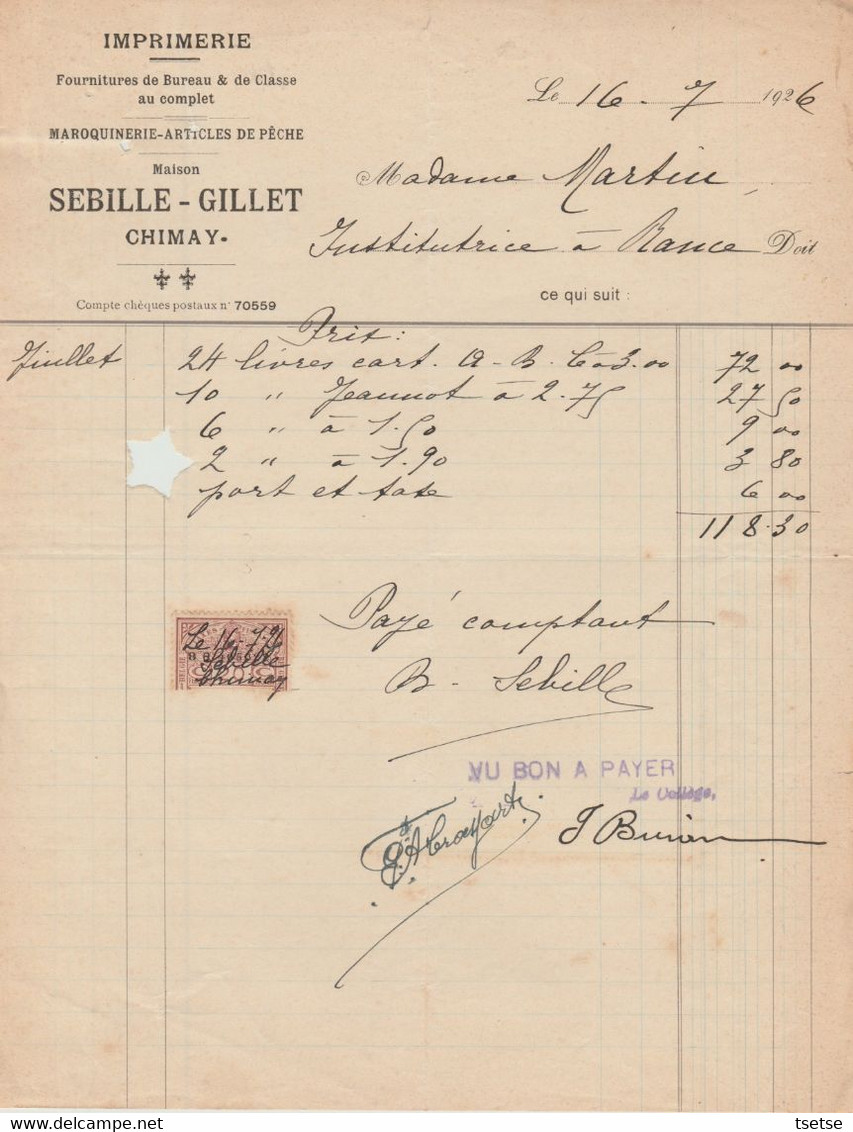 IMPRIMERIE
Fournitures de Bureau & de Classe
au complet
MAROQUINERIE-ARTICLES DE PÊCHE
Maison
SEBILLE - GILLET
CHIMAY.
Compte chéques postaux n° 70559
Le 16 - 7 1926
Madame Martin
Institutrice à Rance Doit
ce qui suit :
Prix :
Juillet 24 livres cart. A - B. C à 3.00 72 00
10 " Jeannot à 2.75 27 50
6 " à 1.50 9 00
2 " à 1.90 3 80
port et taxe 6 00
118.30
Payé comptant
B. Sebille
Le 16-7-26
Sebille
Chimay
BELGIE
VU BON A PAYER
Le Collège,
tsetse